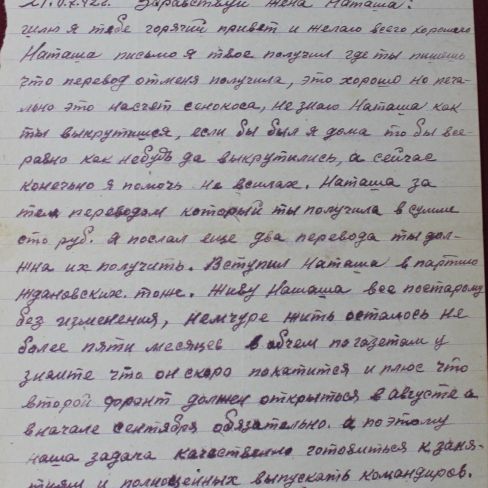 21.07.42г. Здравствуй жена Наташа!
шлю я тебе горячий привет и желаю всего хорошего
Наташа письмо я твое получил где ты пишешь
что перевод отменя получила, это хорошо но печа-
льно это насчет сенокоса, не знаю Наташа как
ты выкрутишся, если бы был я дома то бы все-
равно как небудь да выкрутились, а сейчас
конечьно я помочь не всилах. Наташа за
тем переводом который ты получила в сумме
сто руб. я послал еще два перевода ты дол-
жна их получить. Вступил Наташа в партию
ждановских. тоже. Живу Наташа все постарому
без изменения, немчуре жить осталось не
более пяти месяцев в обчем по газетам у
знаите что он скоро покатится и плюс что
второй фронт должен открыться в августе а
вначале сентября обязательно. а поэтому
наша задача качественно готовиться к заня-
тиям и полноценных выпускать командиров.